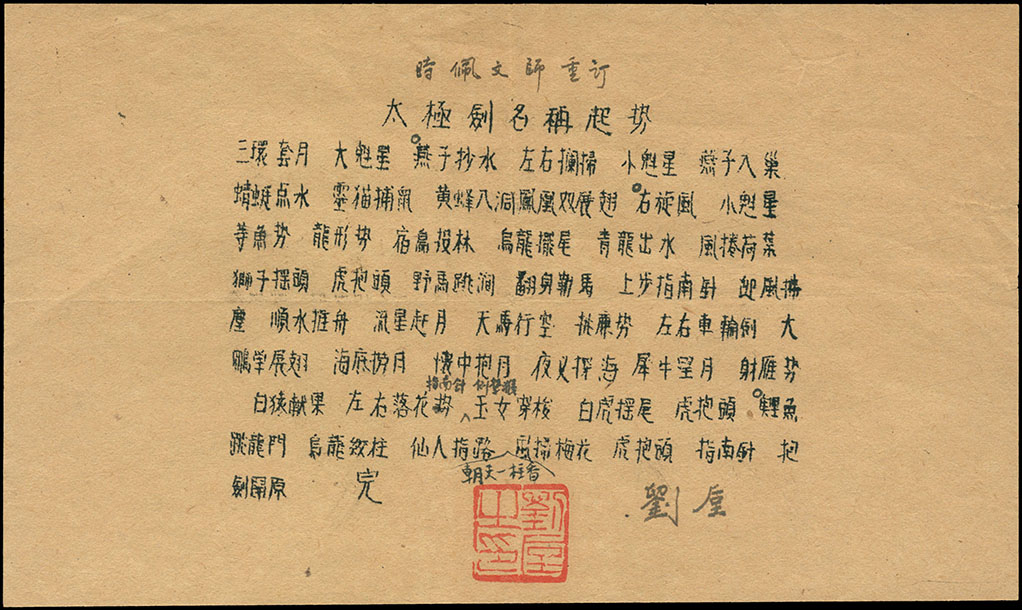 時佩文師重訂
太極劍名稱起势
三環套月 大魁星 燕子抄水 左右攔掃 小魁星 燕子入巢
蜻蜓点水 霊猫捕鼠 黄蜂入洞 鳳凰双展翅 右旋風 小魁星
等魚势 龍形势 宿鳥投林 烏龍擺尾 青龍出水 風捲荷葉
獅子摇頭 虎抱頭 野馬跳澗 翻身勒馬 上步指南針 迎風掸
塵 順水推舟 流星赶月 天馬行空 挑廉势 左右車輪劍 大
鵬学展翅 海底捞月 懐中抱月 夜叉探海 犀牛望月 射雁势
指南針
白猿献果 左右落花势 玉女穿梭 白虎摇尾 虎抱頭 鯉魚
跳龍門 烏龍绞柱 仙人指路 風掃梅花 虎抱頭 指南針 抱
朝天一柱香
劍歸原 完
劉
劉
之印